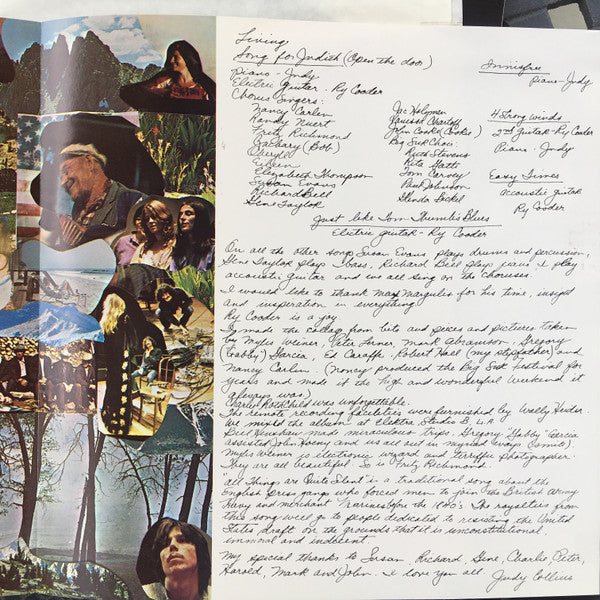 Living:
Song for Judith (Open the door)
Piano - Judy
Electric guitar - Ry Cooder
Chorus Singers:
Nancy Carlen
Randy Nauert
Fritz Richmond
Zachary (Bob)
Cheryll
Eileen
Elizabeth Thompson
Susan Evans
Richard Bell
Gene Taylor
Joe Halpman
Vanessa Chartoff
John Cooke (Cookie)
Big Sur Choir:
Ruth Stevens
Rita Gatti
Tom Carvey
Paul Johnson
Glenda Jackel
Innisfree
Piano - Judy
4 Strong winds
2nd guitar - Ry Cooder
Piano - Judy
Easy Times
acoustic guitar
Ry Cooder
Just like Tom Thumb's Blues
Electric guitar - Ry Cooder
On all the other songs Susan Evans plays drums and percussion,
Gene Taylor plays bass, Richard Bell plays piano. I play
acoustic guitar and we all sing on the choruses.
I would like to thank Max Margulis for his time, insight
and inspiration in everything.
Ry Cooder is a joy.
I made the collage from bits and pieces and pictures taken
by Myles Weiner, Peter Larner, Mark Abramson, Gregory
(Gabby) Garcia, Ed Caraeff, Robert Hall (my stepfather) and
Nancy Carlen (Nancy produced the Big Sur Festival for
years and made it the high and wonderful weekend it
always was.)
Charles Rothchild was unforgettable.
The remote recording facilities were furnished by Wally Heider.
We mixed the album at Elektra Studios B, L.A.
Bill Henshaw made miraculous trips. Gregory "Gabby" Garcia
assisted John Haeny and us all out in mythical ways
Myles Weiner is electronic wizard and terrific photographer.
They are all beautiful. So is Fritz Richmond.
"All Things are Quite Silent" is a traditional song about the
English press gangs who forced men to join the British Army
Navy and merchant Marines for the 1800's. The royalties from
this song will go to people dedicated to resisting the United
States draft on the grounds that it is unconstitutional
immoral and indecent
My special thanks to Susan, Richard, Gene, Charlie, Peter,
Harold, Mark and John. I love you all. Judy Collins